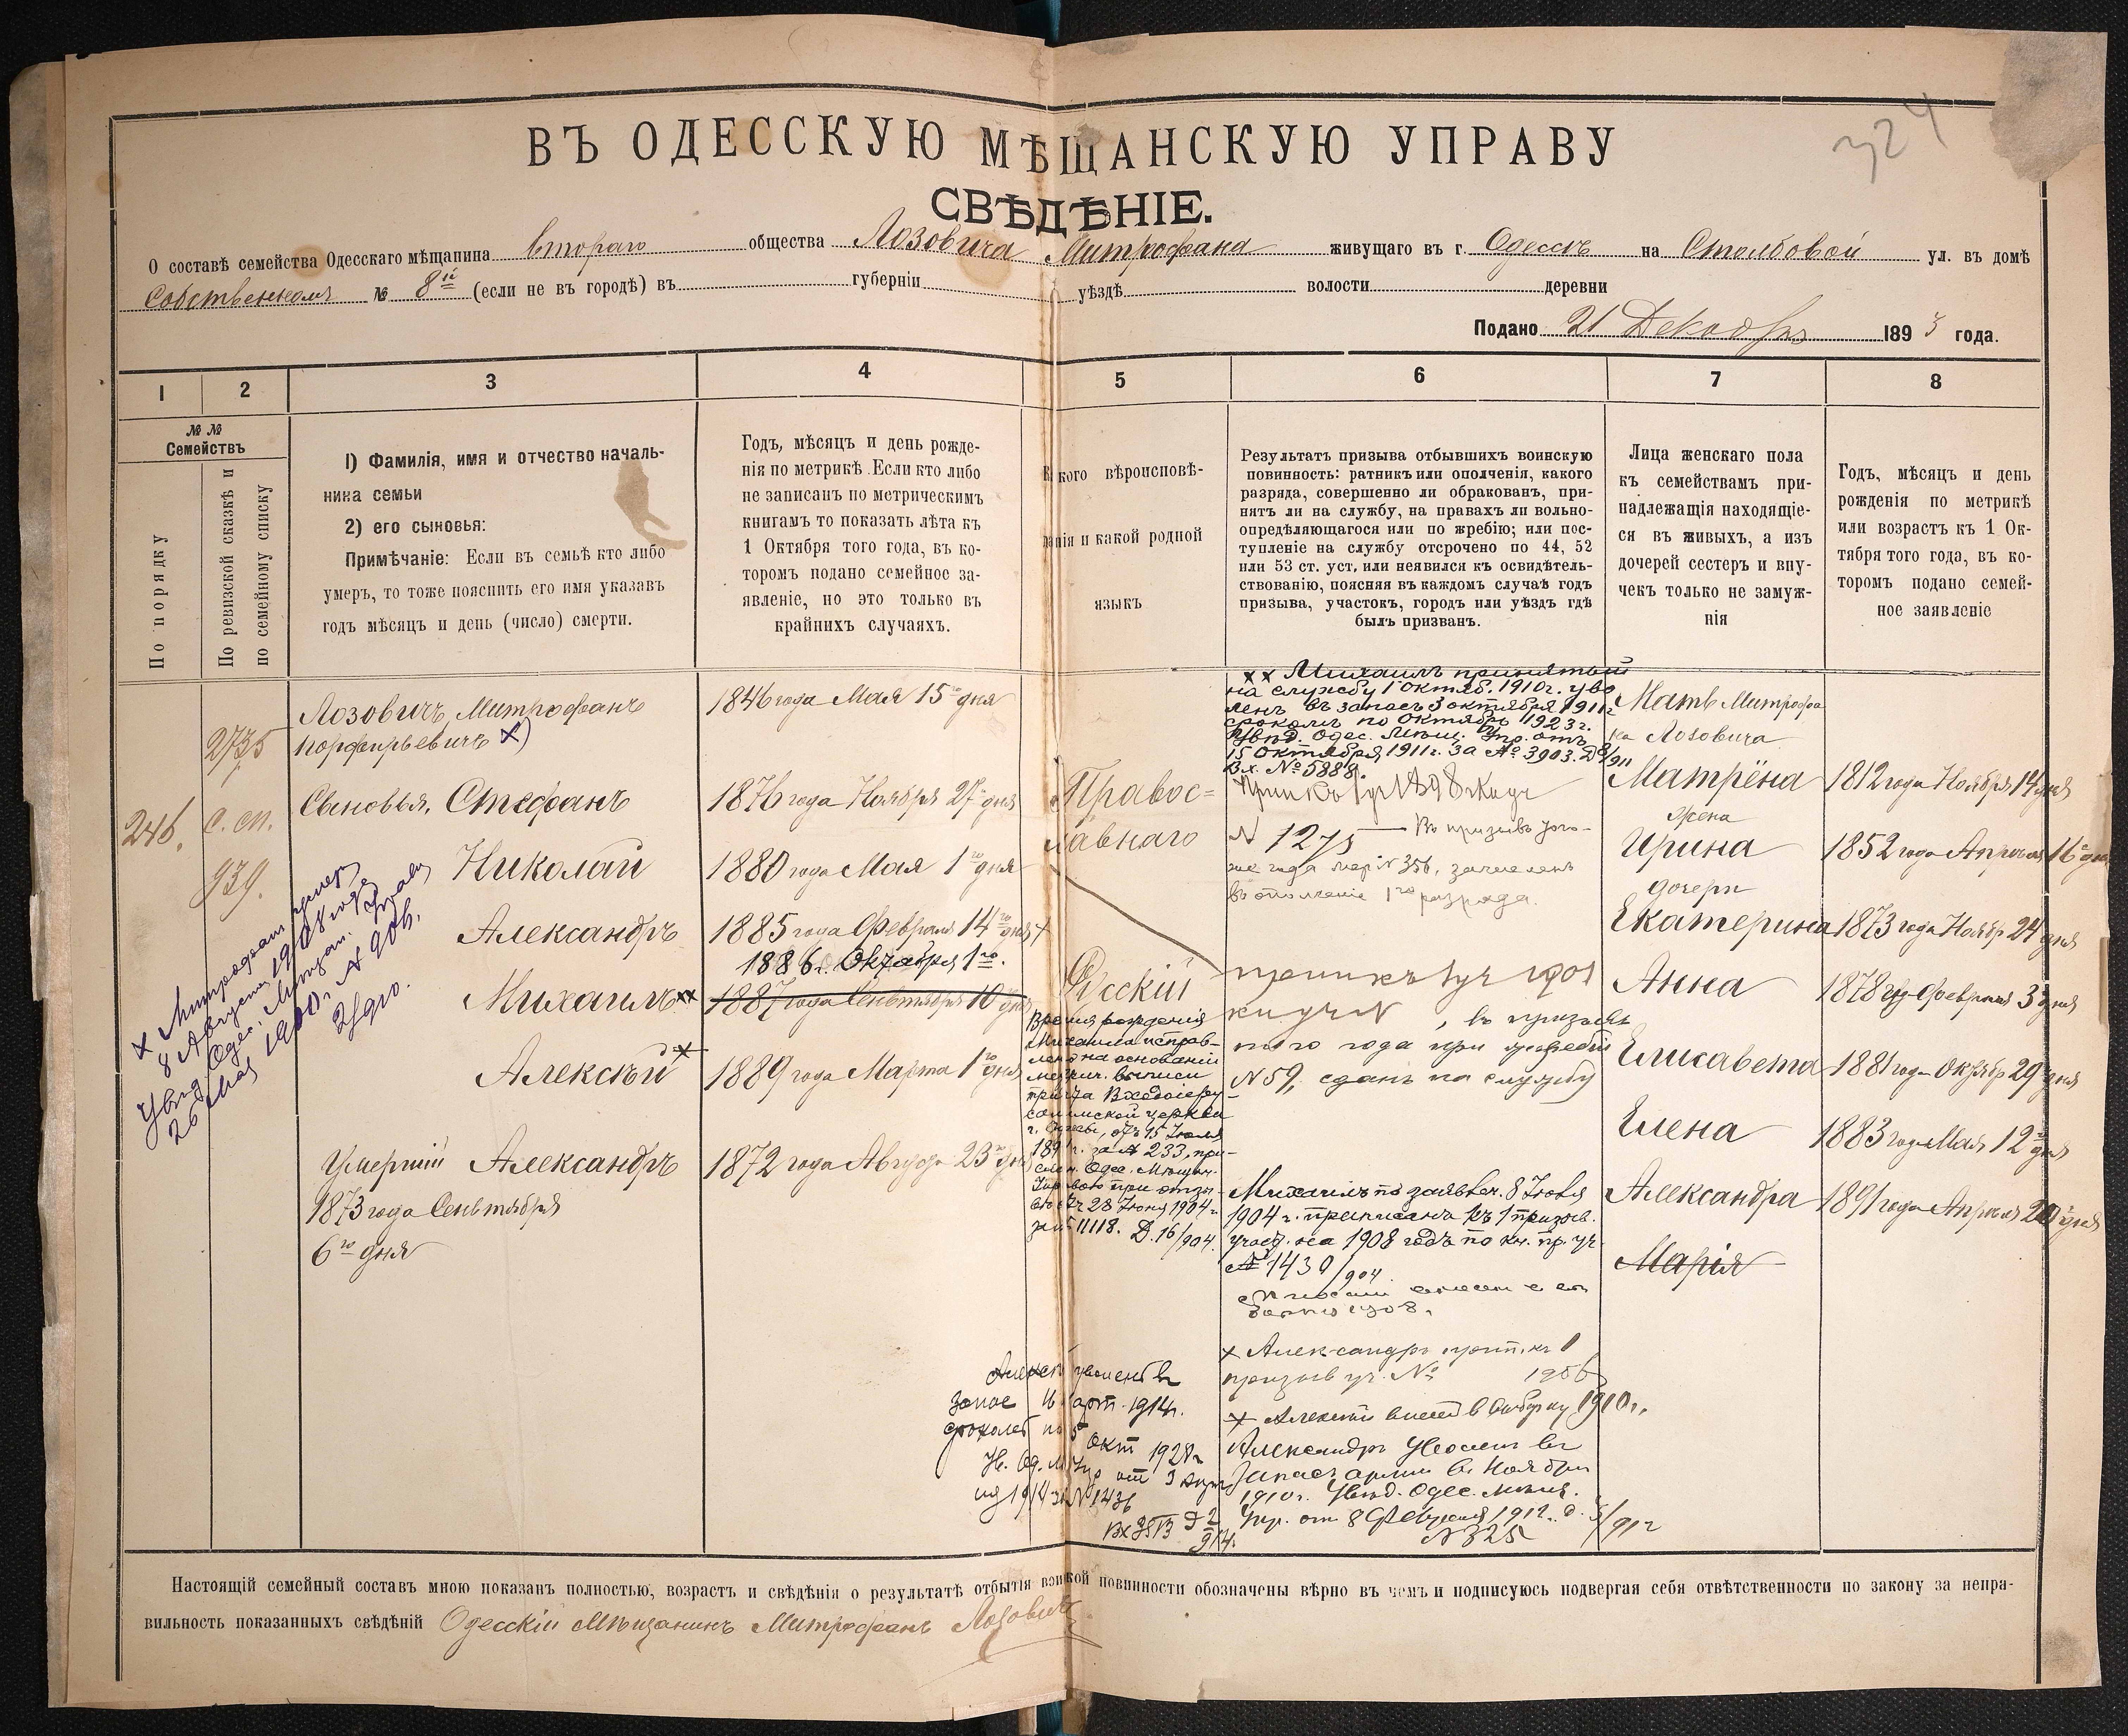 324
ВЪ ОДЕССКУЮ МѢЩАНСКУЮ УПРАВУ
СВѢДѢНІЕ.
О составѣ семейства Одесскаго мѣщанина втораго общества Лозовича Митрофана живущаго въ г. Одессѣ на Столбовой ул. въ домѣ
Собственномъ № 8й (если не въ городѣ) въ губерніи уѣздѣ волости деревни
Подано 21 Декабря 1893 года.
1 2 3 4 5 6 7 8
№ №
Семействъ
По порядку
По ревизской сказкѣ и
по семейному списку
1) Фамилія, имя и отчество началь-
ника семьи
2) его сыновья:
Примѣчаніе: Если въ семьѣ кто либо
умеръ, то тоже пояснить его имя указавъ
годъ мѣсяцъ и день (число) смерти.
Годъ, мѣсяцъ и день рожде-
нія по метрикѣ. Если кто либо
не записанъ по метрическимъ
книгамъ то показать лѣта къ
1 Октября того года, въ ко-
торомъ подано семейное за-
явленіе, но это только въ
крайнихъ случаяхъ.
кого вѣроисповѣ-
данія и какой родной
языкъ
Результатъ призыва отбывшихъ воинскую
повинность: ратникъ или ополченія, какого
разряда, совершенно ли обракованъ, при-
нятъ ли на службу, на правахъ ли вольно-
опредѣляющагося или по жребію; или пос-
тупленіе на службу отсрочено по 44, 52
или 53 ст. уст, или неявился къ освидѣтель-
ствованію, поясняя въ каждомъ случаѣ годъ
призыва, участокъ, городъ или уѣздъ гдѣ
былъ призванъ.
Лица женскаго пола
къ семействамъ при-
надлежащія находящіе-
ся въ живыхъ, а изъ
дочерей сестеръ и вну-
чекъ только не замуж-
нія
Годъ, мѣсяцъ и день
рожденія по метрикѣ
или возрастъ къ 1 Ок-
тября того года, въ ко-
торомъ подано семей-
ное заявленіе
246.
2735
с. сп.
939.
Лозовичъ, Митрофанъ
Порфирьевичъ х)
Сыновья, Стефанъ
Николай
Александръ
Михаилъ хх
Алексѣй х
Умершій Александръ
1873 года Сентября
6го дня
х Митрофанъ умеръ
8 Августа 1908 года
Увѣд. Одес. Мѣщан. Управы
26 Мая 1910 г. № 906.
1846 года Мая 15го дня
1876 года Ноября 27го дня
1880 года Мая 1го дня
1885 года Февраля 14го дня х
1886 г. Октября 1го.
1887 года Сентября 10 дня
1889 года Марта 1го дня
1872 года Августа 23го дня
Правос=
лавнаго
Русскій
Время рожденія
Михаила исправ-
лено на основаніи
метрич. выписи
причта Входоіеру-
салимской церкви
г. Одессы, отъ 15 Іюля
за № 233, при-
слан. Одес. Мѣщан.
Управою при отзы-
вѣ отъ 28 Іюня 1904 г.
за № 11118. Д. 16/904.
Алексѣй уволенъ въ
запас 16 март. 1914 г.
срокомъ по 5
окт 1928 г
Ув. Од. М. Упр от 3 апр
1914 за № 1436
хх Михаилъ принятый
на службу 1 октяб. 1910 г. уво
ленъ въ запасъ 3 октября 1911 г
срокомъ по Октябрь 1923 г.
Увѣд. Одес. Мѣщ. Упр. отъ
15 Октября 1911 г. за № 3903. Д 8/911
Вх. № 5888.
№ 1275 — Въ призывъ того-
же года жер. № 356, зачисленъ
въ ополченіе 1го разряда.
1901
, въ призывъ
того года при жребіи
№ 59, сданъ на службу
Михаилъ по заявлен. 8 Іюля
1904 г. приписанъ къ 1 призыв.
участ. на 1908 годъ по кн. пр. уч.
№ 1430/904.
х Александръ прип. къ 1
призыв уч. № 1906
х Алексѣй внесен в выборку 1910 г.
Александръ Уволенъ въ
Запасъ арміи въ Ноябрѣ
1910 г. Увѣд. Одес. Мѣщ.
Упр. от 8 Февраля 1912. д. 5/912
№ 325
Мать Митрофа
на Лозовича
Матрёна
жена
Ирина
дочери
Екатерина
Анна
Елисавета
Елена
Александра
Марія
1812 года Ноября 14 дня
1852 года Апреля 16го дня
1873 года Ноябр 24 дня
1878 год Февраля 3го дня
1881 года Октябр 29го дня
1883 год Мая 12го дня
1891 года Апреля 20 дня
Настоящій семейный составъ мною показанъ полностью, возрастъ и свѣдѣнія о результатѣ отбытія воинской повинности обозначены вѣрно въ чемъ и подписуюсь подвергая себя отвѣтственности по закону за непра-
вильность показанныхъ свѣдѣній Одесскій Мѣщанинъ Митрофанъ Лозовичъ